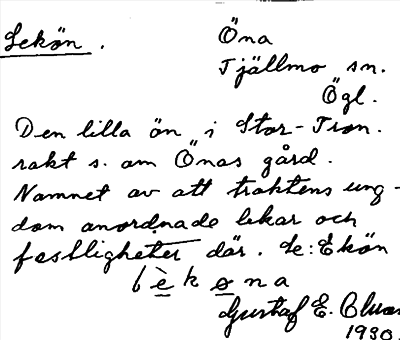 Lekön.
Öna
Tjällmo sn.
Ögl.
Den lilla ön i Stor-Tron.
rakt s. om Önas gård.
Namnet av att traktens ung-
dom anordnade lekar och
festligheter där. Se: Ekön
lèkøna
Gustaf E.
1930.